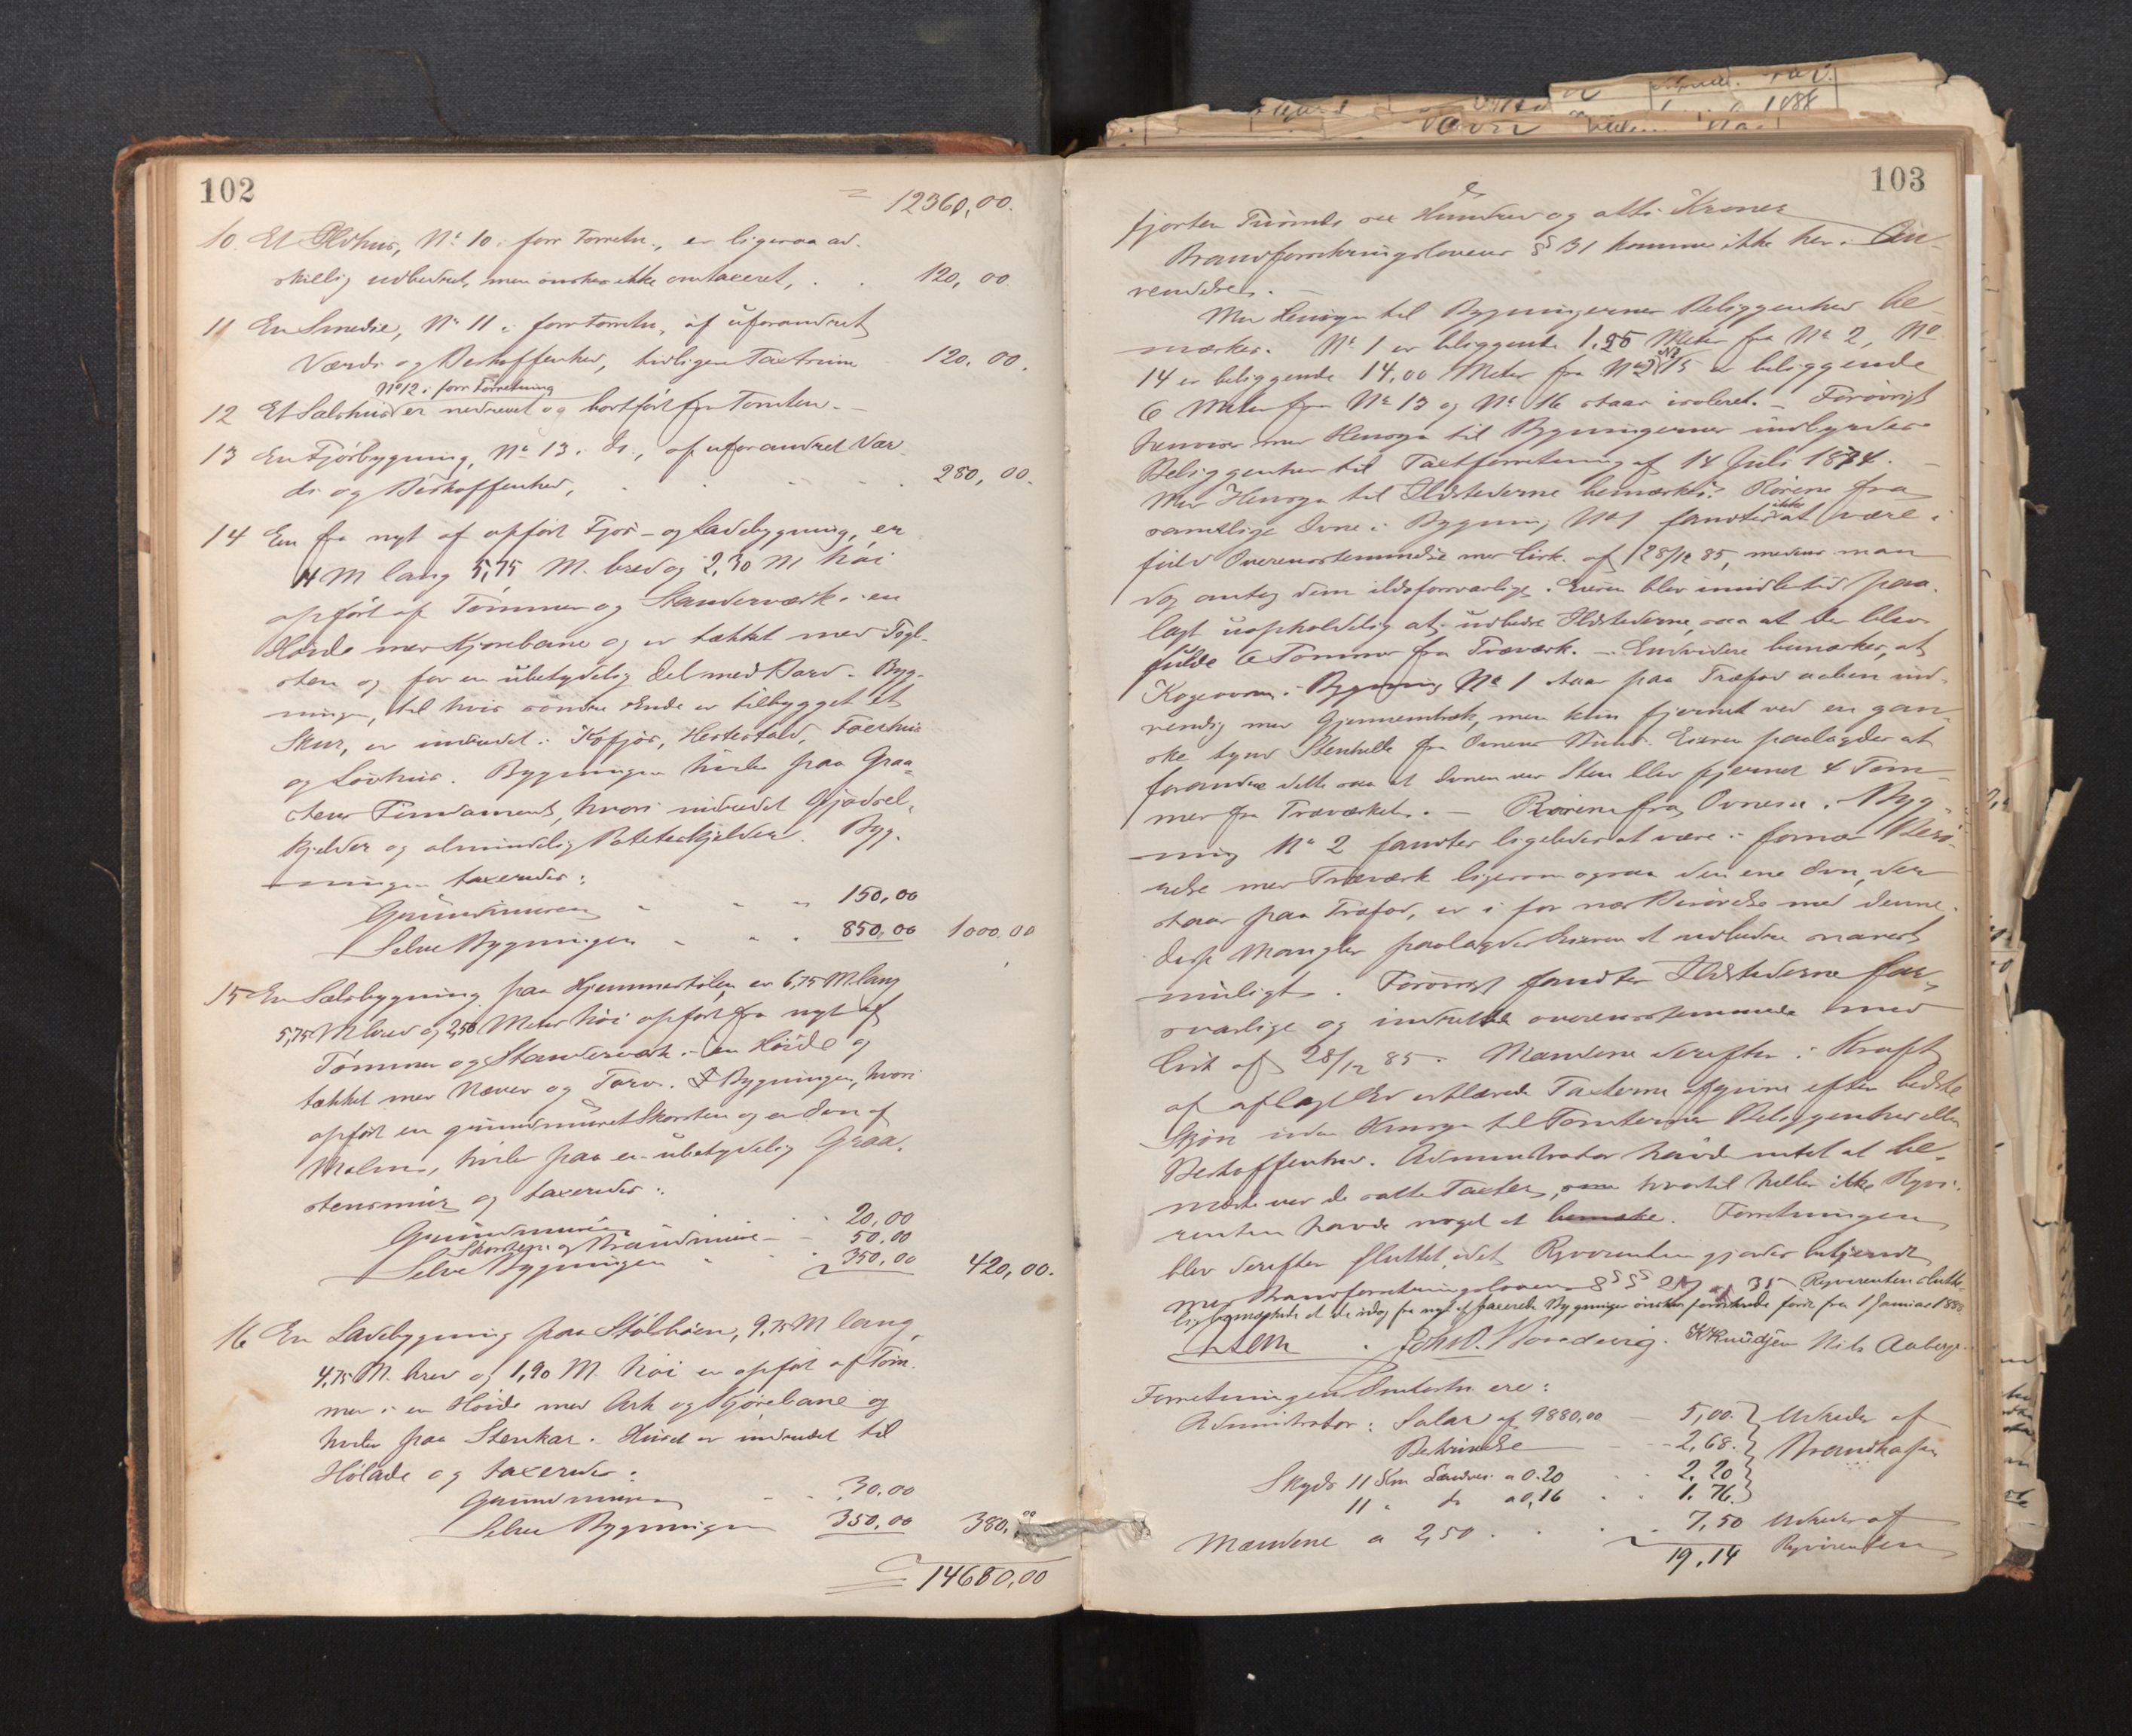 102
= 12360,00.
10. Et Ildhus, No 10 i forr. Forretn., er ligesaa ad-
skillig udbedret, men ønskes ikke omtaxeret, . . 120,00.
11 En Smedie, No 11 i forr. Forretn., af uforandret
Værdi og Beskaffenhed, tidligere Taxtsum 120.00.
No 12 i forr. Forretning
12 Et Sælehus er nedrevet og bortført fra Tomten. —
13 En Fjøsbygning, No 13 i do., af uforandret Vær-
di og Beskaffenhed, . . . . 280,00.
14 En fra nyt af opført Fjøs- og Ladebygning, er
14 M lang 5,75 M. bred og 2,30 M høi
opført af Tømmer og Standerværk i en
Høide med Kjørebane og er tækket med Tagl-
sten og for en ubetydelig Del med Bord. Byg-
ningen, til hvis søndre Ende er tilbygget et
Skur, er indredet i Kofjøs, Hestestald, Faarhus
og Løvhus. Bygningen hviler paa Graa-
stens Fundament, hvori indredet Gjødsel-
kjelder og almindelig Poteteskjelder. Byg-
ningen taxeredes:
Grundmuren . . . 150,00
Selve Bygningen . . . 850,00 1000.00
15 En Sælsbygning paa Hjemmestølen, er 6,75 M. lang
5,75 M bred og 2,50 Meter høi opført fra nyt af
Tømmer og Standerværk i en Høide og
tækket med Næver og Torv. Bygningen, hvori
opført en grundmuret Skorsten og en Ovn af
Malm, hviler paa en ubetydelig Graa-
stensmur og taxeredes:
Grundmuren . . 20,00
Skorsten og Brandmure — . 50,00
Selve Bygningen . . 350,00 420,00.
16 En Ladebygning paa Stølshøien, 9,75 M lang,
4,75 M. bred og 1,90 M. høi er opført af Tøm-
mer i en Høide med Ark og Kjørebane og
hviler paa Stenkar. Huset er indredet til
Hølade og taxeredes:
Grundmuren . . 30.00
Selve Bygningen 350,00 380,00
14680,00
103
fjorten Tusinde sex Hundrede og otti Kroner
Brandforsikringslovens § 31 kommer ikke her i An-
vendelse. —
Med Hensyn til Bygningernes Beliggenhed be-
mærkes. No 1 er beliggende 1.25 Meter fra No 2, No
14 er beliggende 14,00 Meter fra No 2, No 15 er beliggende
6 Meter fra No 13 og No 16 staar isoleret. — Forøvrigt
henvises med Hensyn til Bygningernes indbyrdes
Beliggenhed til Taxtforretning af 14 Juli 1874. —
Med Hensyn til Ildstederne bemærkes: Rørene fra
samtlige Ovne i Bygning No 1 fandtes ikke at være i
fuld Overensstemmelse med Cirk. af 28/12 85, medens man
dog antog dem ildsforsvarlige. Eieren blev imidlertid paa-
lagt uopholdelig at udbedre Ildstederne, saa at der blev
fulde 6 Tommer fra Træværk. — Endvidere bemærkes, at
Kogeovnen i Bygning No 1 staar paa Træfod aaben ind-
vendig med Gjennemtræk, men kun fjernet ved en gan-
ske tynd Stenhelle fra Ovnens Bund. Eieren paalagdes at
forandre dette saa at Ovnen ved Sten blev fjernet 4 Tom-
mer fra Træværket. — Rørene fra Ovnene i Byg-
ning No 2 fandtes ligeledes at være i fornær Berø-
relse med Træværk ligesom ogsaa den ene Ovn, der
staar paa Træfod, er i for nær Berørelse med denne.
Disse Mangler paalagdes Eieren at udbedre snarest
muligt. Forøvrigt fandtes Ildstederne for-
svarlige og indrettede overensstemmende med
Cirk af 28/12 85. Mændene derefter i Kraft
af aflagt Ed erklærede Taxterne afgivne efter bedste
Skjøn uden Hensyn til Tomternes Beliggenhed eller
Beskaffenhed. Administrator havde intet at be-
mærke ved de satte Taxter, hvortil heller ikke Rekvi-
renten havde noget at bemærke. Forretningen
blev derefter sluttet, idet Rekvirenten gjordes bekjendt
med Brandforsikringslovens §§§ 29 og 35. Rekvirenten slutte-
lig bemærkede at de idag fra nyt af taxerede Bygninger ønskes forsikrede først fra 1 Januar 1888
Joh. D. Nordvig. K Knudsen Nils Aaberge
Forretningens Omkostn. ere:
Administrator: Salar af 9880,00 — 5,00. Udredes af
Bekrivelse — 2,68. Brandkassen
Skyds 11 Km Landvei a 0.20 . . 2.20
11 " do a 0,16 . . 1.76.
Mændene a 2,50 . . . . 7,50 Udredes af
19,14 Rekvirenten
1888